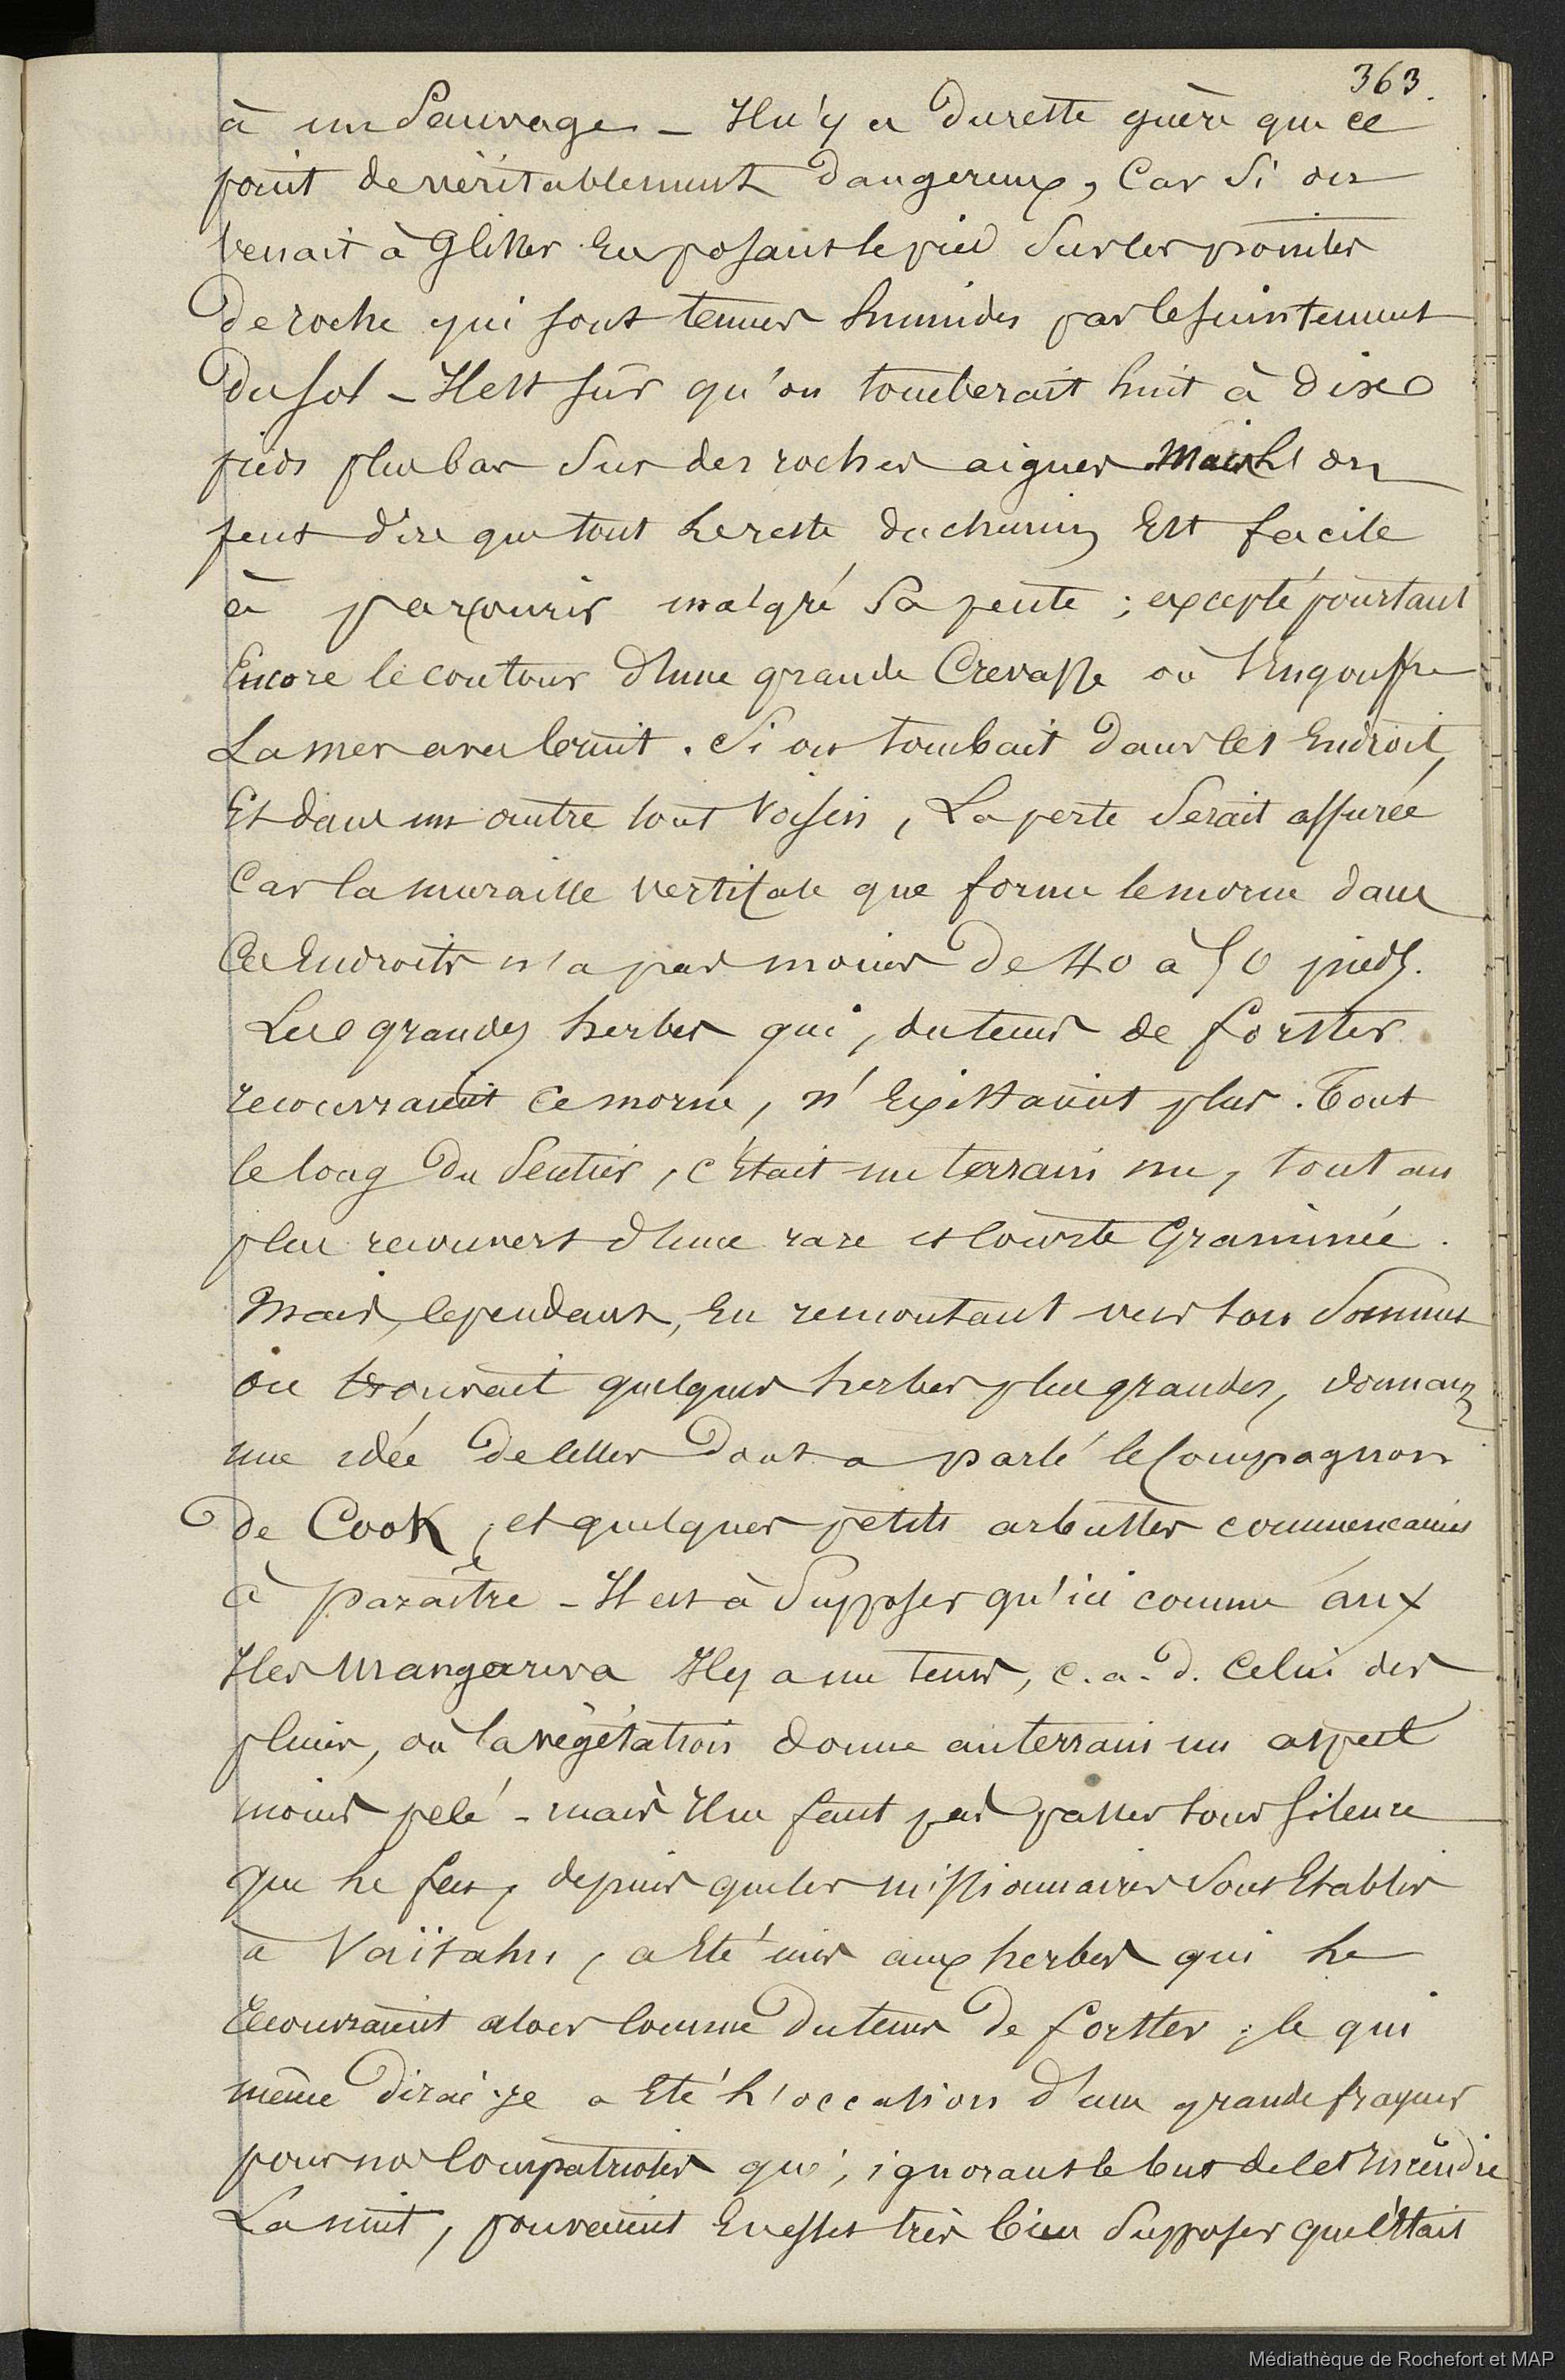 363.
à un Sauvage – Il n'y a du reste guère que ce
point de véritablement dangereux, Car Si on
venait à Glisser En posant le pied Sur les pointes
de roche qui sont tenues humides par le suintement
du sol – Il est sûr qu'on tomberait huit à dix
pieds plus bas Sur des roches aigues Mais on
peut dire que tout le reste du chemin Est facile
à parcourir malgré Sa pente ; excepté pourtant
Encore le contour d'une grande Crevasse où S'engouffre
La mer avec bruit. Si on tombait dans cet Endroit,
Et dans un autre tout Voisin, La perte Serait assurée
Car la muraille verticale que forme le morne dans
Ces Endroits n'a pas moins de 40 à 50 pieds.
Les grandes herbes qui, du tems de forster
recouvraient ce morne, n'Existaient plus. Tout
le long du Sentier, c'Etait un terrain nu, tout au
plus recouvert d'une rare et courte Graminée.
Mais, cependant, En remontant vers son Sommet
on trouvait quelques herbes plus grandes, donnant
une idée de celles dont a parlé le Compagnon
de Cook, et quelques petits arbustes commencaient
à paraître – Il est à Supposer qu'ici comme aux
Iles Mangareva Il y a un tems, c. a. d. Celui des
pluies, où la végétation donne au terrain un aspect
moins pelé – mais Il ne faut pas passer sous silence
que le feu, depuis que les missionnaires Sont Etablis
à Vaïtahu, a Eté mis aux herbes qui le
recouvraient alors comme du tems de forster ; ce qui
même dirai-je a Eté l'occasion d'une grande frayeur
pour nos Compatriotes qui, ignorant le but de cet Incendie
La nuit, pouvaient En effet très bien Supposer que c'était